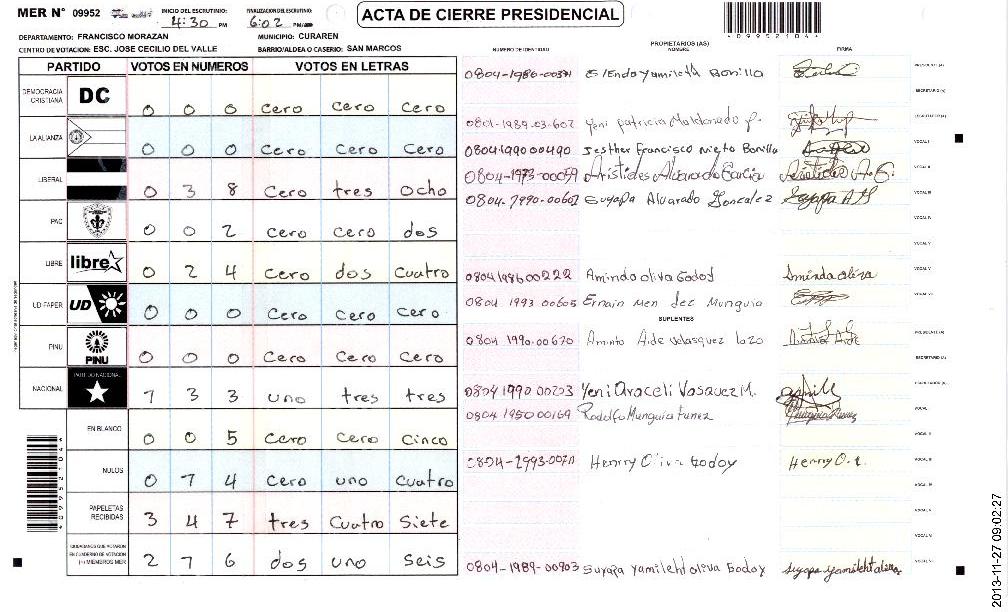 MER N° 09952 INICIO DEL ESCRUTINIO: 4:30 PM FINALIZACION DEL ESCRUTINIO: 6:02 PM
ACTA DE CIERRE PRESIDENCIAL
*09952104*
DEPARTAMENTO: FRANCISCO MORAZAN MUNICIPIO: CURAREN
CENTRO DE VOTACION: ESC. JOSE CECILIO DEL VALLE BARRIO/ALDEA O CASERIO: SAN MARCOS
PARTIDO VOTOS EN NUMEROS VOTOS EN LETRAS
DEMOCRACIA CRISTIANA DC 0 0 0 Cero Cero Cero
LA ALIANZA 0 0 0 Cero Cero Cero
LIBERAL 0 3 8 Cero tres Ocho
PAC 0 0 2 Cero Cero dos
LIBRE libre 0 2 4 Cero dos Cuatro
UD FAPER UD 0 0 0 Cero Cero Cero
PINU PINU 0 0 0 Cero Cero Cero
NACIONAL PARTIDO NACIONAL 1 3 3 uno tres tres
EN BLANCO 0 0 5 Cero Cero Cinco
NULOS 0 1 4 Cero uno Cuatro
PAPELETAS RECIBIDAS 3 4 7 tres Cuatro Siete
CIUDADANOS QUE VOTARON EN CUADERNO DE VOTACION (+) MIEMBROS MER 2 1 6 dos uno Seis
*09952104*
NUMERO DE IDENTIDAD PROPIETARIOS (AS) NOMBRE FIRMA
Glenda yamileth Bonilla PRESIDENTE (A)
SECRETARIO (A)
0801-1989-03-602 Yeni patricia Maldonado p. ESCRUTADOR (A)
0804 1990 00490 Jesther Francisco Nieto Bonilla VOCAL I
0804-1973-00059 Aristides Alvarado Garcia Aristides A.G. VOCAL II
0804-1990-00602 Suyapa Alvarado Gonzalez Suyapa AG VOCAL III
VOCAL IV
VOCAL V
0804 1986 00222 Aminda oliva Godoy Aminda oliva VOCAL V
0804 1993 00605 VOCAL VI
SUPLENTES
0804 1990-00670 Aminto Aide Velasquez lozo PRESIDENTE (A)
SECRETARIO (A)
0804 1990 00203 Yeni araceli Vasquez M. ESCRUTADOR (A)
0804 1950 00169 Rodolfo Munguia tunez VOCAL I
VOCAL II
Henrry Oliva Godoy Henrry O. VOCAL III
VOCAL IV
VOCAL V
VOCAL VI
0804-1989-00903 Suyapa yamileht oliva Godoy suyapa yamileht oliva
2013-11-27 09:02:27